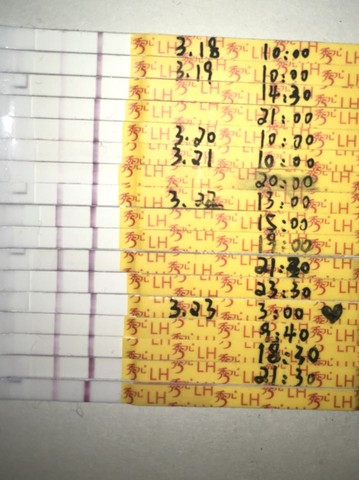 3.18 10:00
3.19 10:00
14:30
21:00
3.20 10:00
3.21 10:00
20:00
3.22 13:00
15:00
19:00
21:30
23:30
3.23 3:00 ♥
9:40
18:30
21:30
秀儿 LH